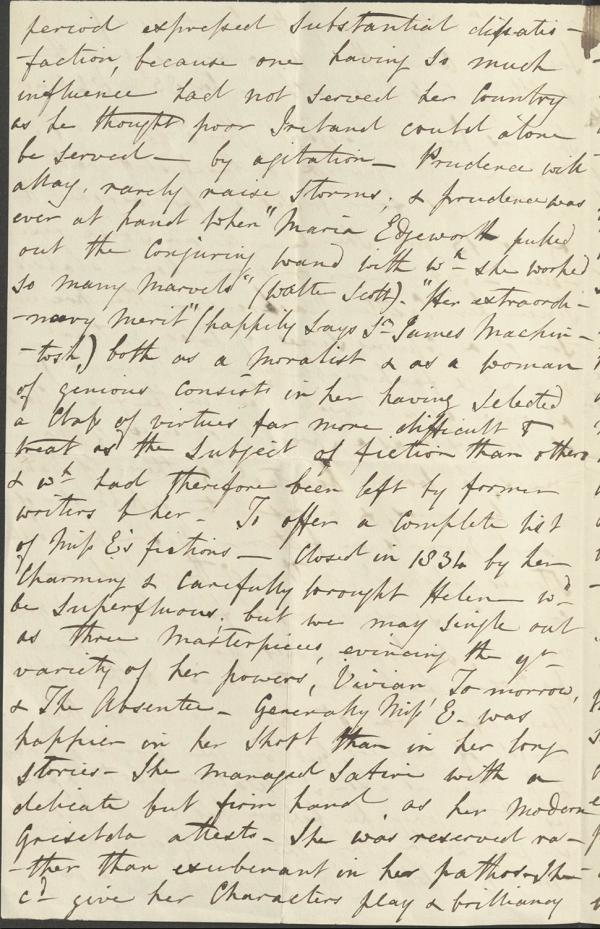 period expressed substantial dissatis-
faction, because one having so much
influence had not served her Country
as he thought poor Ireland could alone
be served — by agitation — Prudence will
allay, rarely raise storms; & prudence was
ever at hand when "Maria Edgeworth pulled
out the Conjuring wand with wh. she worked
so many marvels" (Walter Scott). "Her extraordi-
-nary merit" (happily says Sr. James Mackin-
-tosh) both as a moralist & as a woman
of genious consists in her having selected
a Class of virtues far more difficult to
treat as the subject of fiction than others
& wh. had therefore been left by former
writers to her — To offer a complete list
of Miss E's fictions — Closed in 1834 by her
Charming & Carefully wrought Helen wd.
be Superfluous; but we may single out
as three Masterpieces, evincing the gt.
variety of her powers, Vivian, To morrow,
& The Absentee — Generally Miss E. was
happier in her Short than in her long
Stories — She managed Satire with a
delicate but firm hand, as her Modern
Griselda attests — She was reserved ra-
-ther than exuberant in her pathos — She
cd. give her Characters play & brilliancy